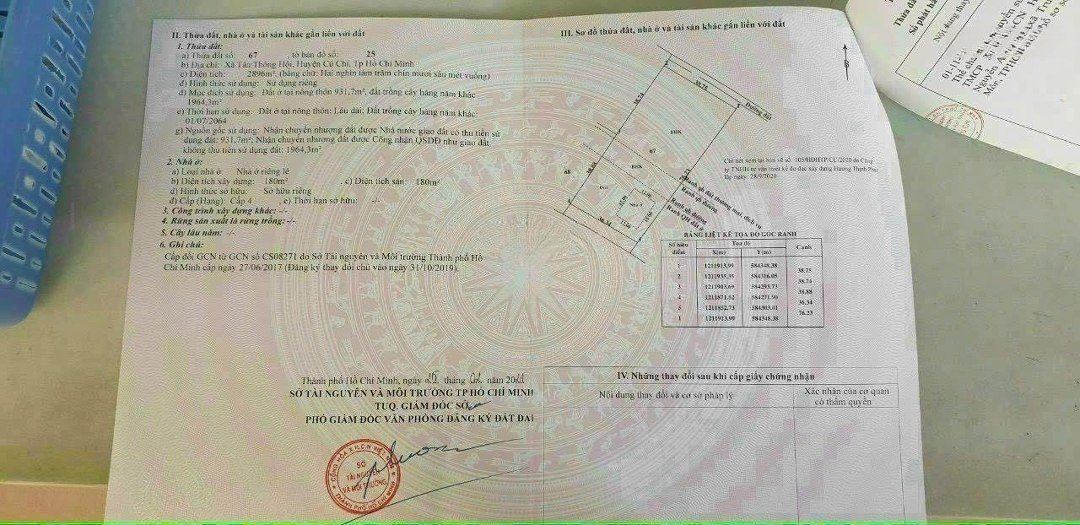 II. Thửa đất, nhà ở và tài sản khác gắn liền với đất
1. Thửa đất:
a) Thửa đất số: 67 , tờ bản đồ số: 25
b) Địa chỉ: Xã Tân Thông Hội, Huyện Củ Chi, Tp Hồ Chí Minh
c) Diện tích: 2896m², (bằng chữ: Hai nghìn tám trăm chín mươi sáu mét vuông)
d) Hình thức sử dụng: Sử dụng riêng
đ) Mục đích sử dụng: Đất ở tại nông thôn 931,7m², đất trồng cây hàng năm khác
1964,3m²
e) Thời hạn sử dụng: Đất ở tại nông thôn: Lâu dài; Đất trồng cây hàng năm khác:
01/07/2064
g) Nguồn gốc sử dụng: Nhận chuyển nhượng đất được Nhà nước giao đất có thu tiền sử
dụng đất: 931,7m²; Nhận chuyển nhượng đất được Công nhận QSDĐ như giao đất
không thu tiền sử dụng đất: 1964,3m²
2. Nhà ở:
a) Loại nhà ở: Nhà ở riêng lẻ
b) Diện tích xây dựng: 180m² , c) Diện tích sàn: 180m²
d) Hình thức sở hữu: Sở hữu riêng
đ) Cấp (Hạng): Cấp 4 , e) Thời hạn sở hữu: -/-
3. Công trình xây dựng khác: -/-
4. Rừng sản xuất là rừng trồng: -/-
5. Cây lâu năm: -/-
6. Ghi chú:
Cấp đổi GCN từ GCN số CS08271 do Sở Tài nguyên và Môi trường Thành phố Hồ
Chí Minh cấp ngày 27/06/2017 (Đăng ký thay đổi chủ vào ngày 31/10/2019).
Thành phố Hồ Chí Minh, ngày tháng năm
SỞ TÀI NGUYÊN VÀ MÔI TRƯỜNG TP HỒ CHÍ MINH
TUQ. GIÁM ĐỐC SỞ
PHÓ GIÁM ĐỐC VĂN PHÒNG ĐĂNG KÝ ĐẤT ĐAI
CỘNG HÒA X.H.C.N VIỆT NAM
SỞ
TÀI NGUYÊN
VÀ MÔI TRƯỜNG
THÀNH PHỐ HỒ CHÍ MINH
III. Sơ đồ thửa đất, nhà ở và tài sản khác gắn liền với đất
B
Đường đất
38.75
38.74
BHK
67
38.88
BHK
68
36.34
Chi tiết xem tại bản vẽ số: do Công
ty TNHH tư vấn thiết kế đo đạc xây dựng Hương Thịnh Phát
lập ngày 28/9/2020
BẢNG LIỆT KÊ TỌA ĐỘ GÓC RANH
Số hiệu điểm Tọa độ Cạnh
X(m) Y(m)
1 1211913.99 584348.38
38.75
2 1211935.35 584316.05
38.74
3 1211903.69 584293.73
38.88
4 1211871.52 584271.90
36.34
5 1211852.73 584303.01
76.23
1 1211913.99 584348.38
IV. Những thay đổi sau khi cấp giấy chứng nhận
Nội dung thay đổi và cơ sở pháp lý
Xác nhận của cơ quan
có thẩm quyền
Thửa đất
Số phát hành
Nội dung thay
Thế chấp
TMCP
Nguyễn
Môn, TPHCM